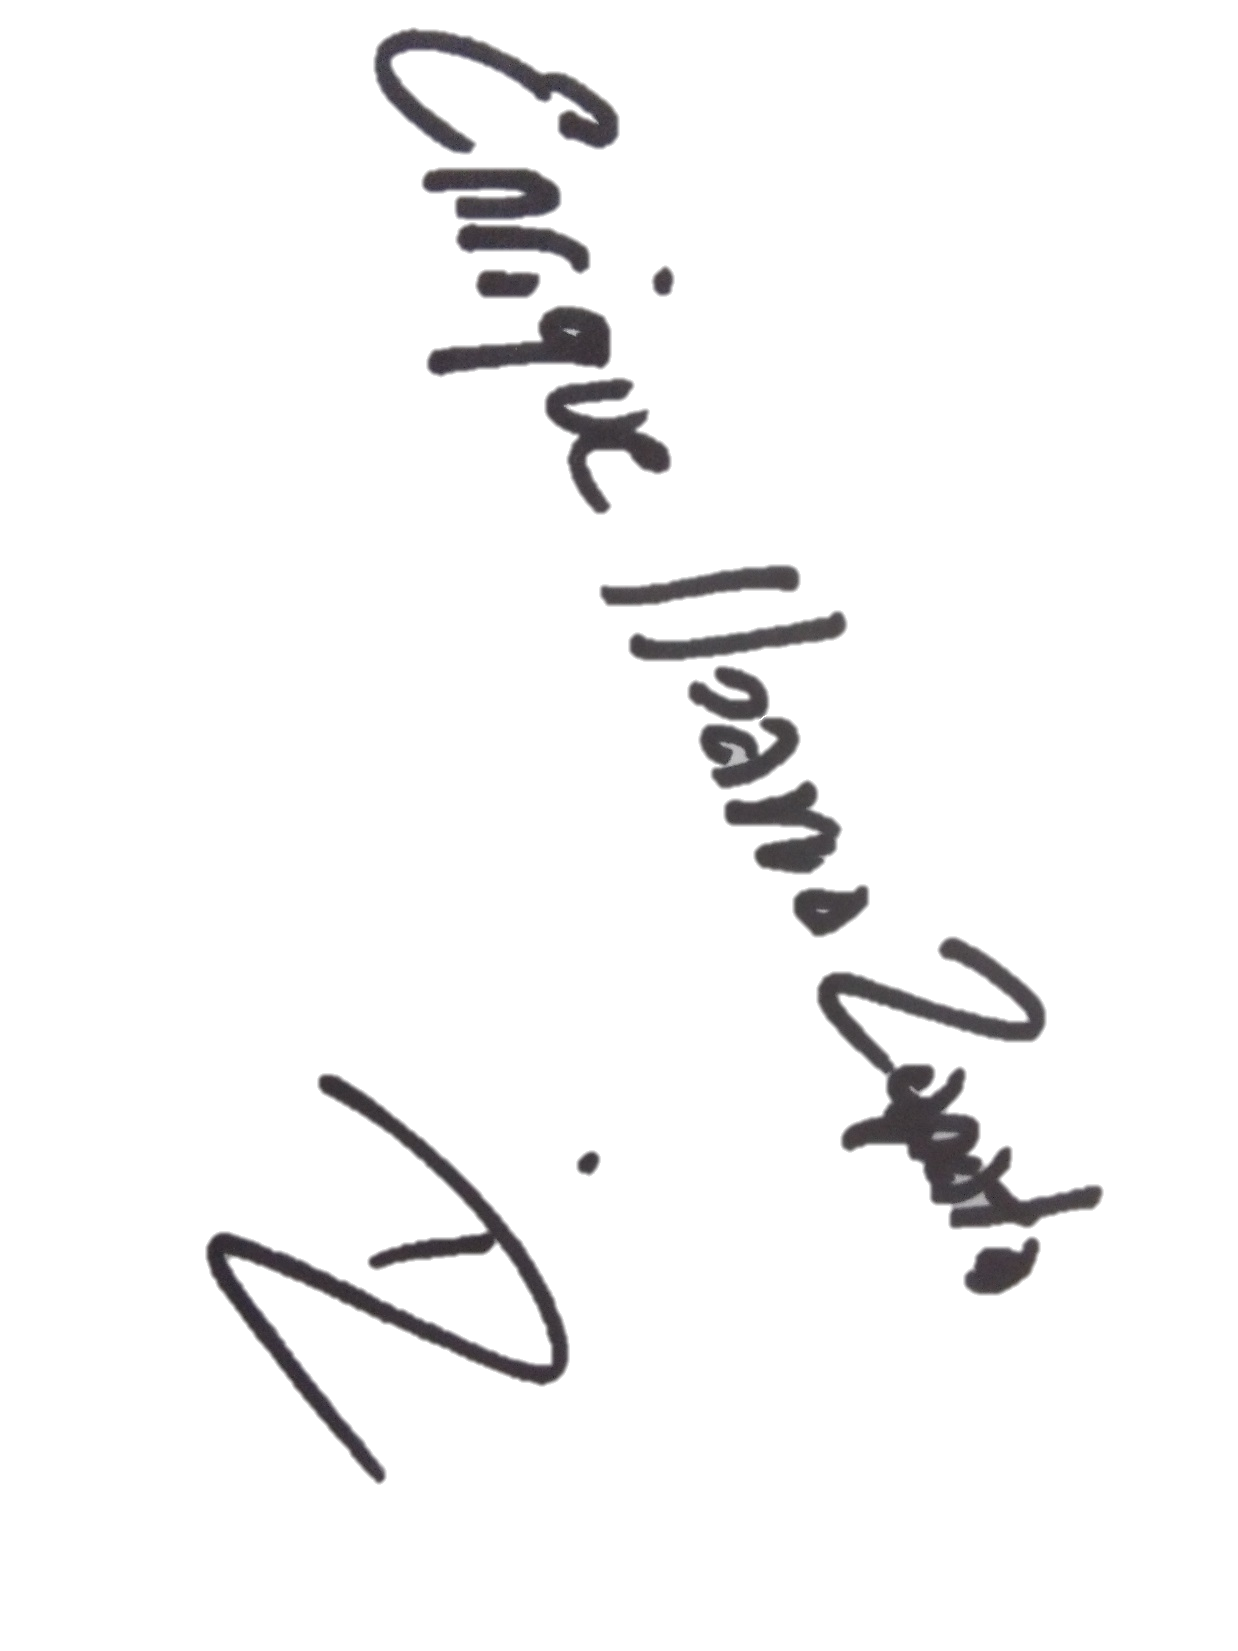 Enrique Lloano Zapata
Z